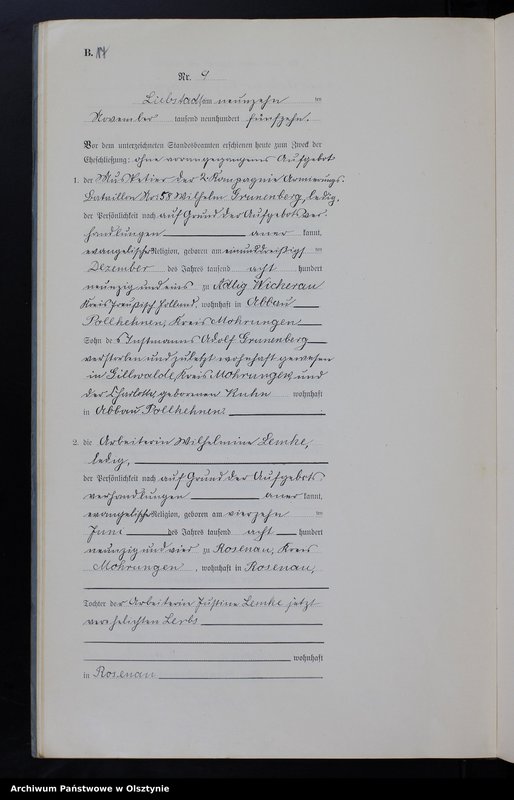 B. 17
Nr. 9
Liebstadt am neunzehn ten
November tausend neunhundert fünfzehn.
Vor dem unterzeichneten Standesbeamten erschienen heute zum Zweck der
Eheschließung: ohne vorangegangenes Aufgebot
1. der Musketier der 2. Kompagnie Armierungs-
Bataillon Nr: 58 Wilhelm Grunenberg, ledig,
der Persönlichkeit nach auf Grund der Aufgebotsver-
handlungen aner kannt,
evangelischer Religion, geboren am einunddreißigs ten
Dezember des Jahres tausend acht hundert
neunzig und eins zu Adlig Wickerau
Kreis Preußisch Holland, wohnhaft in Abbau
Pollkehnen, Kreis Mohrungen
Sohn des Instmanns Adolf Grunenberg
verstorben und zuletzt wohnhaft gewesen
in Gillwalde, Kreis Mohrungen, und
der Charlotte, geborenen Kuhn wohnhaft
in Abbau Pollkehnen
2. die Arbeiterin Wilhelmine Lemke,
ledig,
der Persönlichkeit nach auf Grund der Aufgebots
verhandlungen aner kannt,
evangelischer Religion, geboren am vierzehn ten
Juni des Jahres tausend acht hundert
neunzig und vier zu Rosenau, Kreis
Mohrungen, wohnhaft in Rosenau,
Tochter der Arbeiterin Justine Lemke jetzt
verehelichten Lerbs
wohnhaft
in Rosenau
Archiwum Państwowe w Olsztynie